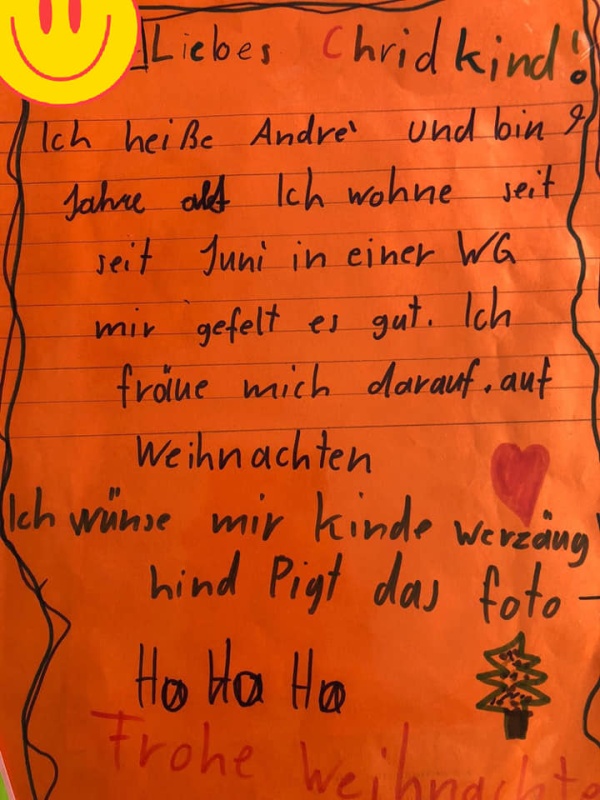 Liebes Chridkind!
Ich heiße Andrè und bin 9
Jahre alt Ich wohne seit
seit Juni in einer WG
mir gefelt es gut. Ich
fräue mich darauf. auf
Weihnachten
Ich wünse mir kinde werzäug
hind Pigt das foto -
Ho Ho Ho
Frohe Weihnachte